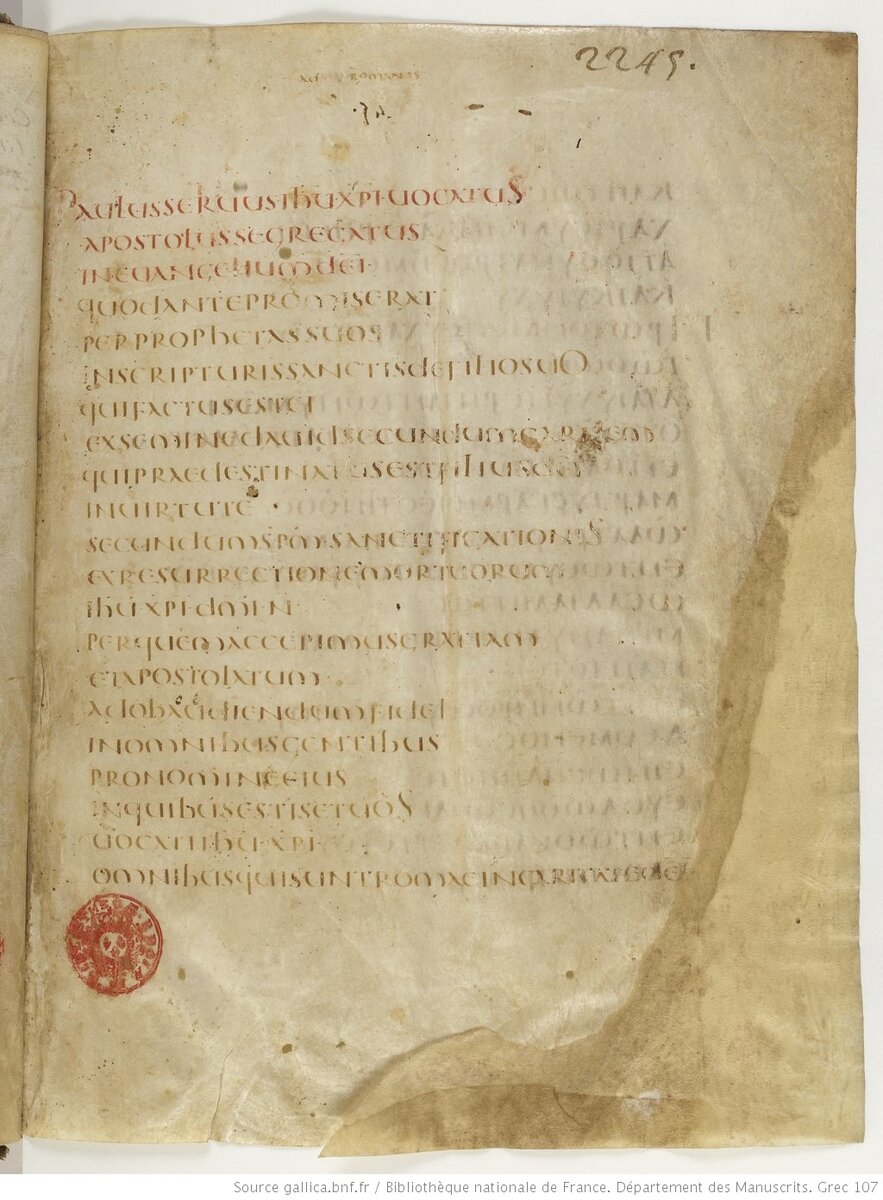 2245.
ad romanos
paulusseruusihuxpiuocatus
apostolussegregatus
ineuangeliumdei
quodantepromiserat
perprophetassuos
inscripturissanctisdefiliosuo
quifactusestei
exseminedauidsecundumcarnem
quipraedestinatusestfiliusdei
inuirtute
secundumspmsanctificationis
exresurrectionemortuorum
ihuxpidmen
perquemaccepimusgratiam
etapostolatum
adobaudiendumfidei
inomnibusgentibus
pronomineeius
inquibusestisetuos
uocatiihuxpi
omnibusquisuntromaeincaritatedei
Source gallica.bnf.fr / Bibliothèque nationale de France. Département des Manuscrits. Grec 107